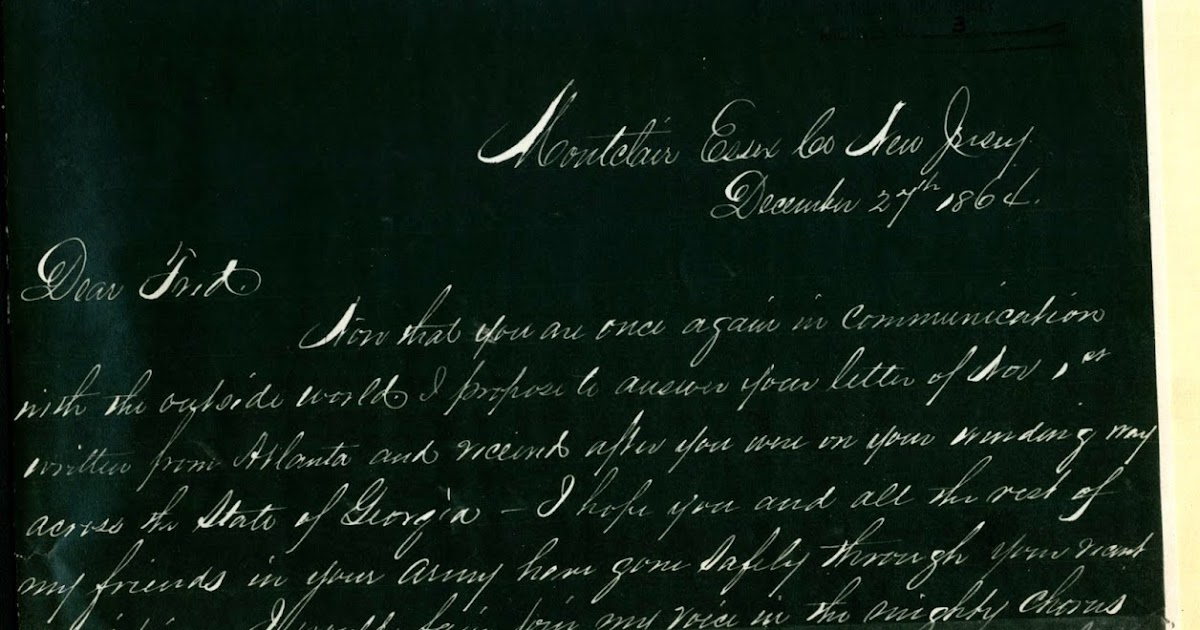 3
Montclair Essex Co New Jersey
December 27th 1864.
Dear Fred.
Now that you are once again in communication
with the outside world I propose to answer your letter of Nov 1st
written from Atlanta and received after you were on your winding way
across the State of Georgia – I hope you and all the rest of
my friends in your army have gone safely through your recent
I would fain join my voice in the mighty chorus